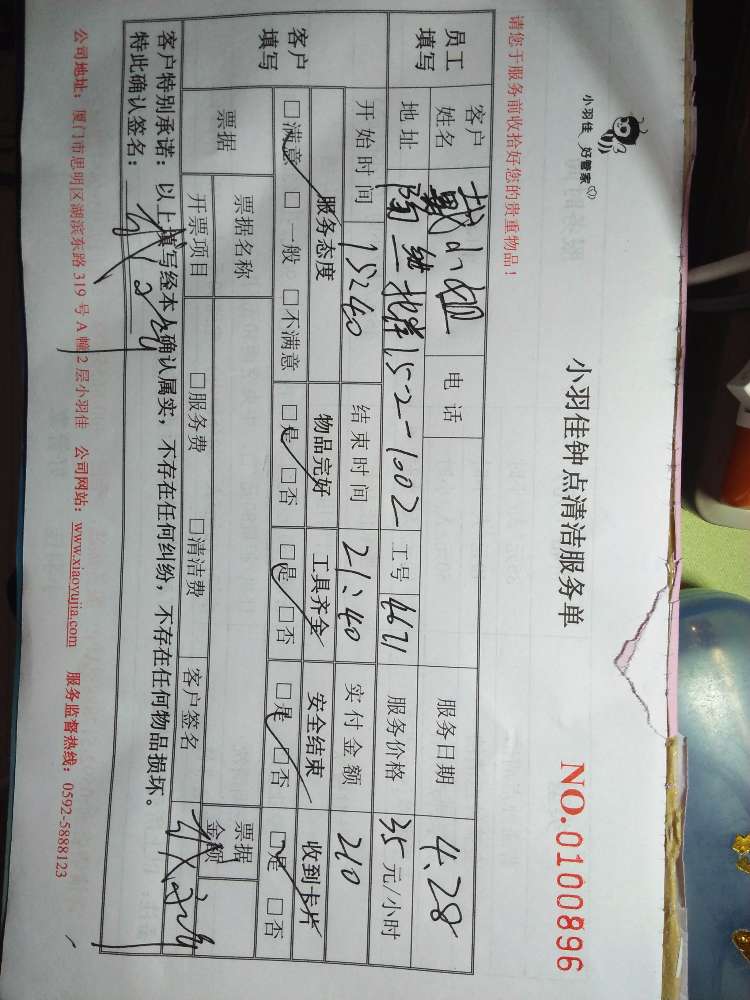 小羽佳 好管家
小羽佳钟点清洁服务单
NO.0100896
请您于服务前收拾好您的贵重物品！
员工填写 客户姓名 戴小姐 电话 服务日期 4.28
地址 152-1002 工号 4671 服务价格 35元/小时
开始时间 15:40 结束时间 21:40 实付金额 210
客户填写 服务态度 物品完好 工具齐全 安全结束 收到卡片
□满意 □一般 □不满意 □是 □否 □是 □否 □是 □否 □是 □否
票据 票据名称 票据金额
开票项目 □服务费 □清洁费 客户签名
客户特别承诺：以上填写经本人确认属实，不存在任何纠纷，不存在任何物品损坏。
特此确认签名：
公司地址：厦门市思明区湖滨东路 319 号 A 幢 2 层小羽佳 公司网站：www.xiaoyujia.com 服务监督热线：0592-5888123